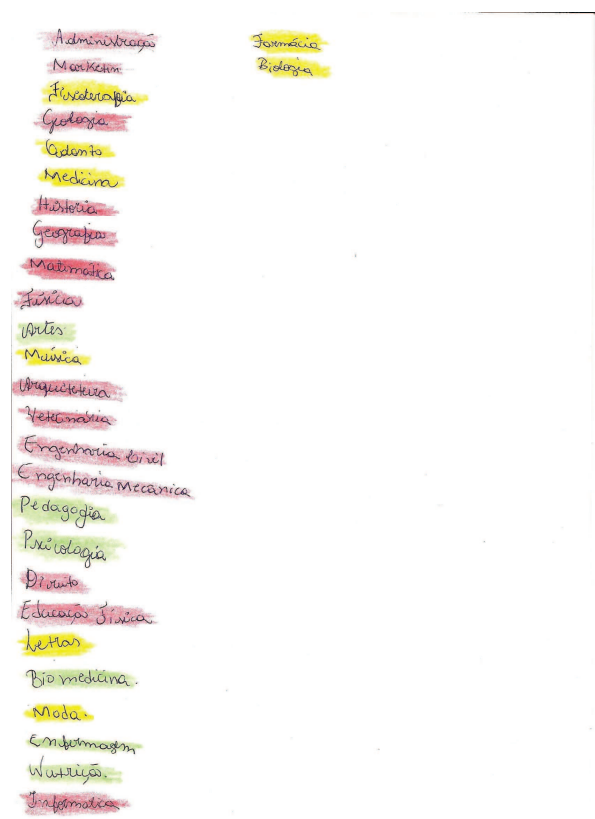 Administração
Marketin
Fisioterapia
Geologia
Odonto
Medicina
História
Geografia
Matimatica
Física
Artes
Música
Arquitetura
Veterinária
Engenharia Civil
Engenharia Mecânica
Pedagogia
Psicologia
Direito
Educação Física
Letras
Biomedicina.
Moda.
Enfermagem
Nutrição.
Informatica
Farmácia
Biologia